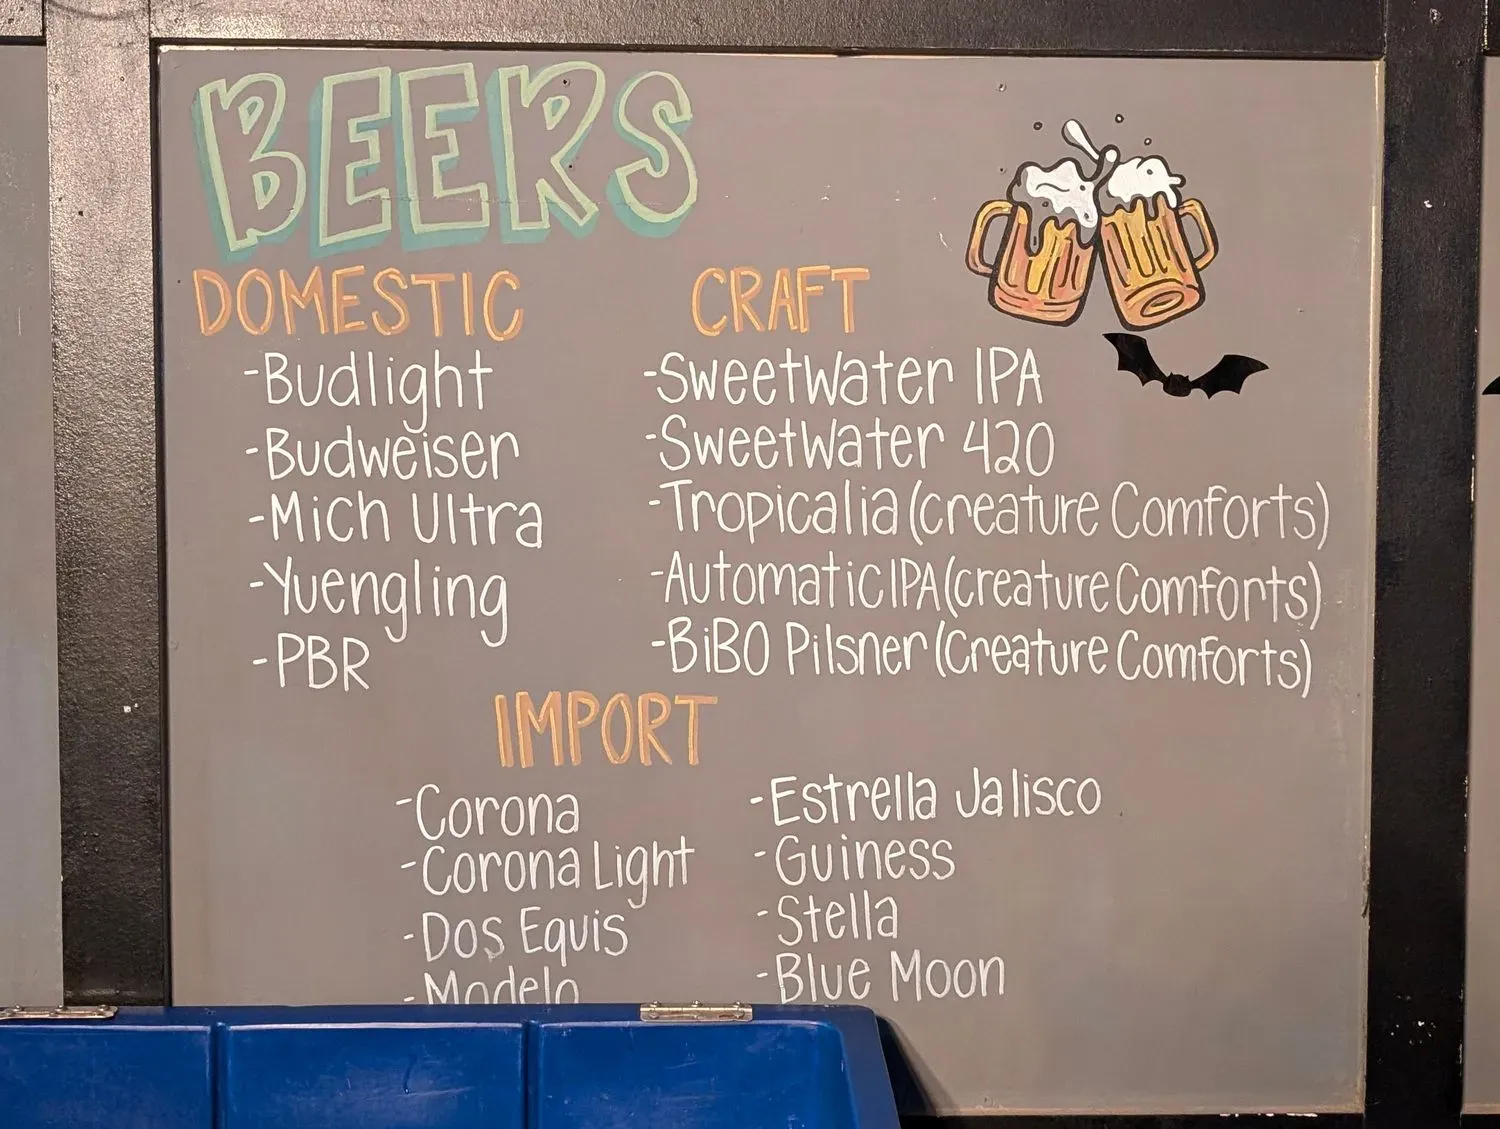 BEERS
DOMESTIC
-Budlight
-Budweiser
-Mich Ultra
-Yuengling
-PBR
CRAFT
-SweetWater IPA
-SweetWater 420
-Tropicalia (Creature Comforts)
-Automatic IPA (Creature Comforts)
-BiBO Pilsner (Creature Comforts)
IMPORT
-Corona
-Corona Light
-Dos Equis
-Modelo
-Estrella Jalisco
-Guiness
-Stella
-Blue Moon